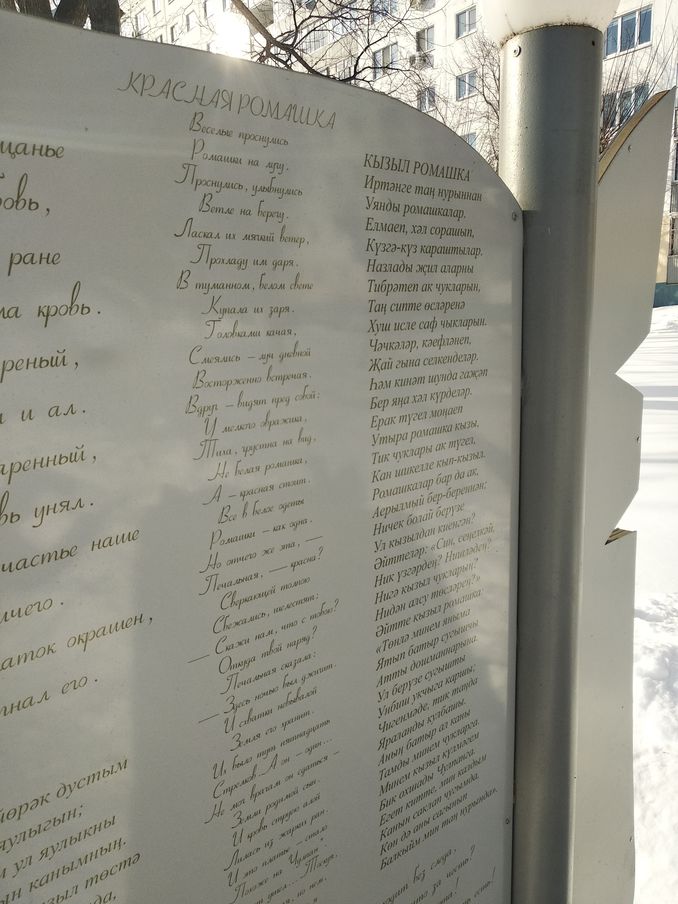 цанье
ровь,
ране
ла кровь.
реный,
и ал.
аренный,
вь унял.
счастье наше
ичего.
аток окрашен,
гнал его.
йөрәк дустым
яулыгын;
м ул яулыкны
ын канымның.
ызыл төстә
КРАСНАЯ РОМАШКА
Веселые проснулись
Ромашки на лугу.
Проснулись, улыбнулись
Ветле на берегу.
Ласкал их мягкий ветер,
Прохладу им даря.
В туманном, белом свете
Купала их заря.
Головками качая,
Смеялись – луч дневной
Восторженно встречая.
Вдруг – видят пред собой:
У мелкого овражка,
Тиха, грустна на вид,
Не белая ромашка,
А – красная стоит.
Все в белое одеты
Ромашки – как одна.
Но отчего же эта, —
Печальная, — красна?
Сверкающей толпою
Сбежались, шелестят:
— Скажи нам, что с тобою?
Откуда твой наряд?
Печальная сказала:
— Здесь ночью был джигит.
И схватки небывалой
Земля его хранит.
Их было тут пятнадцать
Стрелков. А он – один...
Не мог врагам он сдаться –
Земли родимой сын.
И кровь струею алой
Лилась из жарких ран.
И это платье – стало
Похоже на "Чулпан".
КЫЗЫЛ РОМАШКА
Иртәнге таң нурыннан
Уянды ромашкалар.
Елмаеп, хәл сорашып,
Күзгә-күз караштылар.
Назлады җил аларны
Тибрәтеп ак чукларын,
Таң сипте өсләренә
Хуш исле саф чыкларын.
Чәчкәләр, кәефләнеп,
Җай гына селкенделәр.
Һәм кинәт шунда гаҗәп
Бер яңа хәл күрделәр.
Ерак түгел моңаеп
Утыра ромашка кызы,
Тик чуклары ак түгел,
Кан шикелле кып-кызыл.
Ромашкалар бар да ак,
Аерылмый бер-береннән;
Ничек болай берүзе
Ул кызылдан киенгән?
Әйттеләр: «Син, сеңелкәй,
Ник үзгәрдең? Нишләдең?
Нигә кызыл чукларың?
Нидән алсу төсләрең?»
Әйтте кызыл ромашка:
«Төнлә минем яныма
Ятып батыр сугышчы
Атты дошманнарына.
Ул берүзе сугышты
Унбиш укчыга каршы;
Чигенмәде, тик таңда
Яраланды кулбашы.
Аның батыр ал каны
Тамды минем чукларга.
Минем кызыл күлмәгем
Бик охшады Чулпанга.
Егет китте, мин калдым
Канын саклап чугымда.
Көн дә аны сагынып
Балкыйм мин таң нурында».